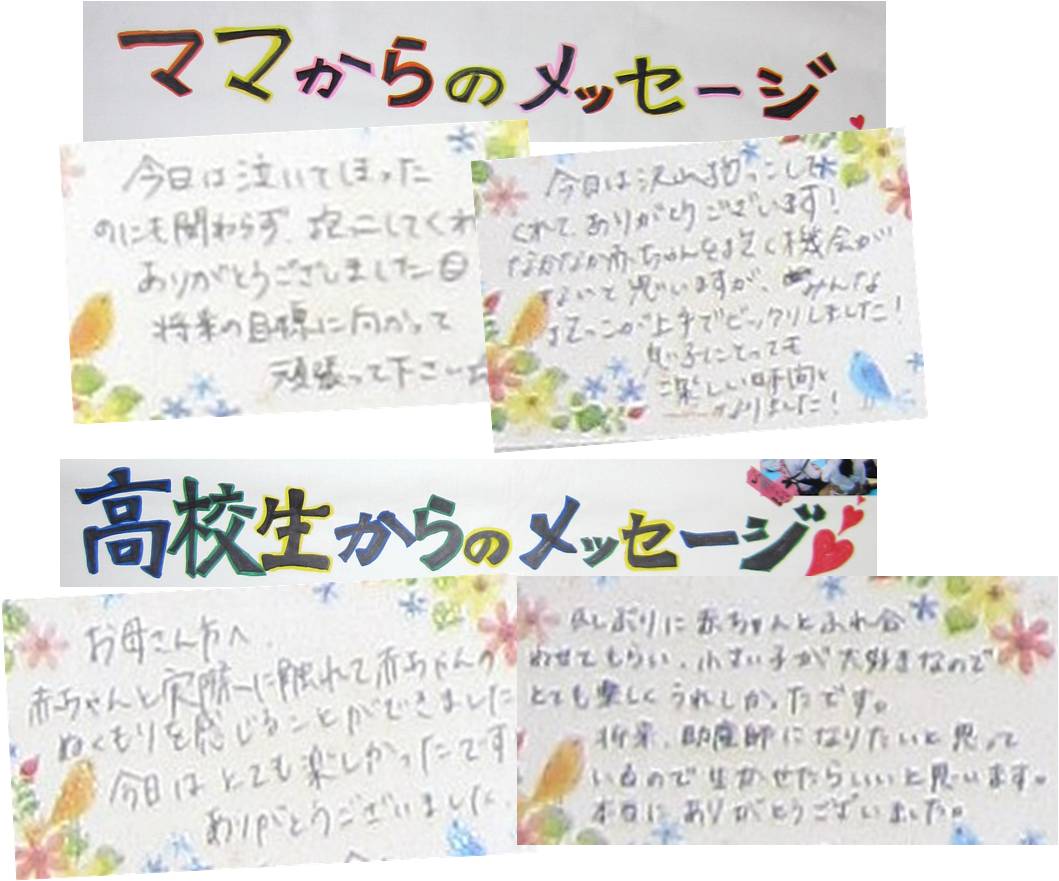 ママからのメッセージ
今日は泣いてしまった
のにも関わらず、抱っこしてくれ
ありがとうございました
将来の目標に向かって
頑張って下さい
今日は沢山抱っこして
くれて、ありがとうございます!
なかなか赤ちゃんを抱く機会が
ないと思いますが、みんな
抱っこが上手でビックリしました!
息子にとっても
楽しい時間と
なりました!
高校生からのメッセージ
お母さん方へ、
赤ちゃんと実際に触れて赤ちゃんの
ぬくもりを感じることができました
今日はとても楽しかったです
ありがとうございました
久しぶりに赤ちゃんとふれ合
わせてもらい、小さい子が大好きなので
とても楽しくうれしかったです。
将来、助産師になりたいと思って
いるので生かせたらいいと思います。
本日はありがとうございました。